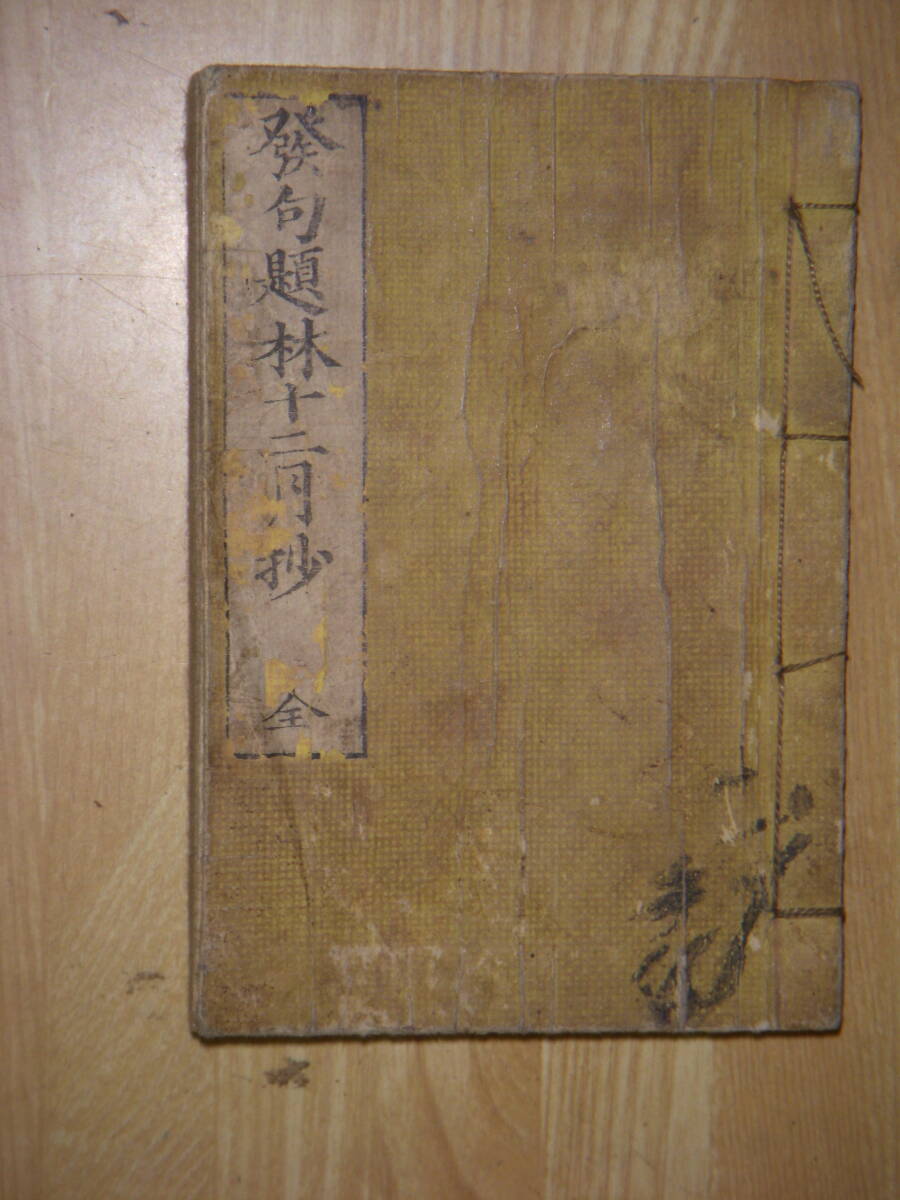 發句題林十二月抄 全